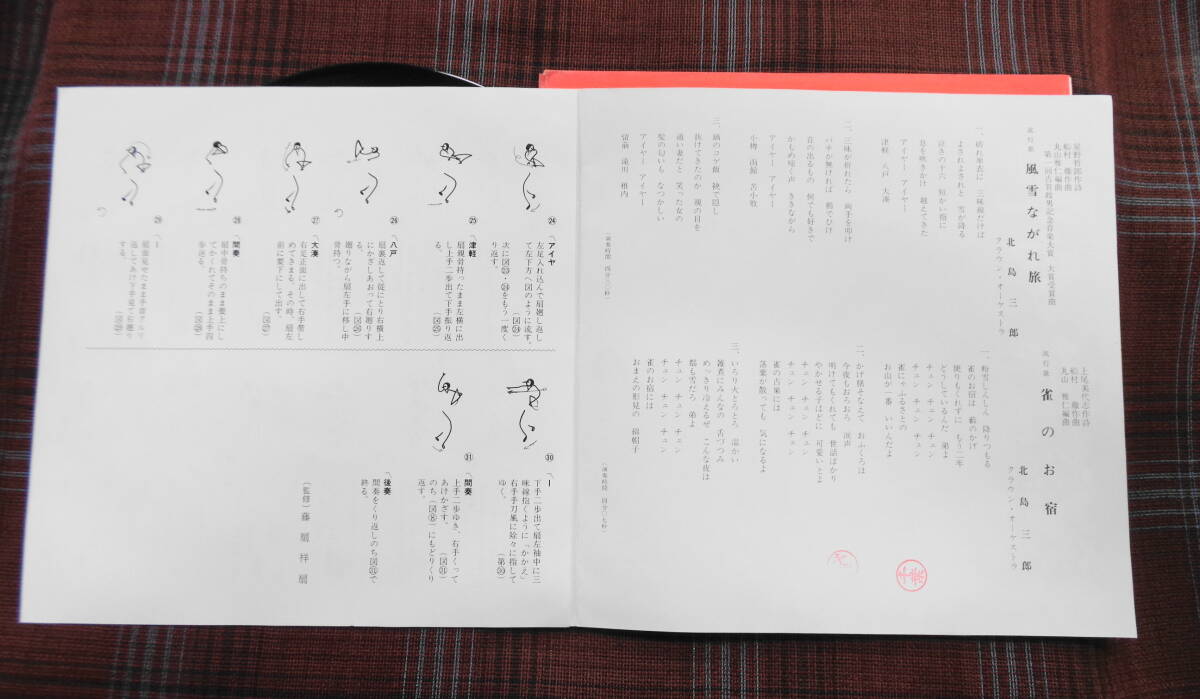 星野哲郎作詩
船村　徹作曲
丸山雅仁編曲
第一回古賀政男記念音楽大賞　大賞受賞曲
流行歌　風雪ながれ旅
北島三郎
クラウン・オーケストラ
一、破れ単衣に　三味線だけば
よされよされと　雪が降る
泣きの十六　短かい指に
息を吹きかけ　越えてきた
アイヤー　アイヤー
津軽　八戸　大湊
二、三味が折れたら　両手を叩け
バチが無ければ　櫛でひけ
音の出るもの　何でも好きで
かもめ啼く声　ききながら
アイヤー　アイヤー
小樽　函館　苫小牧
三、鍋のコゲ飯　袂で隠し
抜けてきたのか　親の目を
通い妻だと　笑った女の
髪の匂いも　なつかしい
アイヤー　アイヤー
留萌　滝川　稚内
（演奏時間　四分三〇秒）
上尾美代志作詩
船村　徹作曲
丸山　雅仁編曲
流行歌　雀のお宿
北島三郎
クラウン・オーケストラ
一、粉雪しんしん　降りつもる
雀のお宿は　藪のかげ
便りもくれずに　もう二年
どうしているんだ　弟よ
チュン　チュン　チュン
チュン　チュン　チュン
雀にゃふるさとの
お山が一番　いいんだよ
二、かげ膳そなえて　おふくろは
今夜もおろおろ　涙声
明けてもくれても　世話ばかり
やかせる子ほどに　可愛いとよ
チュン　チュン　チュン
チュン　チュン　チュン
雀の古巣には
落葉が散っても　気になるよ
三、いろり火とろとろ　温かい
雑煮にみんなの　舌づつみ
めっきり冷えるぜ　こんな夜は
都も雪だろ　弟よ
チュン　チュン　チュン
チュン　チュン　チュン
雀のお宿には
おまえの形見の　綿帽子
（演奏時間　四分〇七秒）
㉔
〽アイヤ
左足入れ込んで扇廻し返し
て左下方へ図のように流す。
（図㉔）
次に図㉓・㉔をもう一度く
り返す。
㉕
〽津軽
扇親骨持ったまま左横に出
し上手二歩出て下手振り返
る。
（図㉕）
㉖
〽八戸
扇裏返して縦にとり右横上
にかざしあおって右廻りす
る。
（図㉖）
廻りながら扇左手に移し中
骨持つ。
㉗
〽大湊
右足正面に出して右手督し
めてきまる。その時、扇左
前に要下にして出す。
（図㉗）
㉘
〽間奏
扇中骨持ちのまま要上にし
てかくれてそのまま上手四
歩送る。
（図㉘）
㉙
〽ー
扇面見せたまま手首クルリ
返してあけ下手見て右廻り
する。
（図㉙）
㉚
〽ー
下手二歩出て扇左袖中に三
味線抱くように「かかえ」
右手手刀風に除々に指して
ゆく。
（第㉚）
㉛
〽間奏
上手二歩ゆき、右手くって
あけかざす。
（図㉛）
のち（図⑧）にもどりくり
返す。
〽後奏
間奏をくり返しのち図㉛で
終る。
（監修）藤扇祥扇